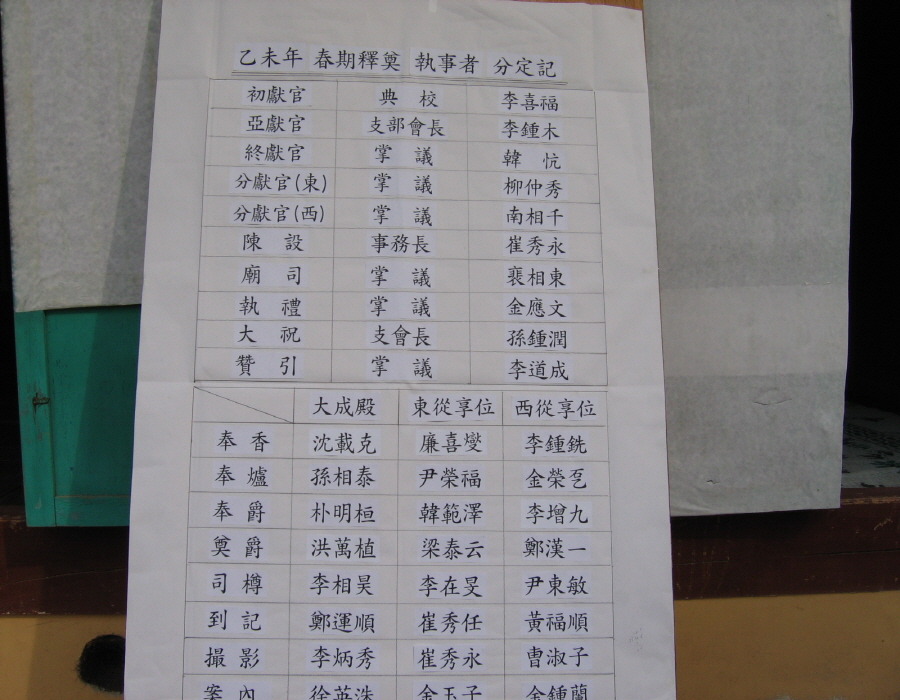 乙未年 春期釋奠 執事者 分定記
初獻官 典校 李喜福
亞獻官 支部會長 李鍾木
終獻官 掌議 韓忼
分獻官(東) 掌議 柳仲秀
分獻官(西) 掌議 南相千
陳設 事務長 崔秀永
廟司 掌議 裵相東
執禮 掌議 金應文
大祝 支會長 孫鍾潤
贊引 掌議 李道成
大成殿 東從享位 西從享位
奉香 沈載克 廉喜燮 李鍾銑
奉爐 孫相泰 尹榮福 金榮
奉爵 朴明桓 韓範澤 李增九
奠爵 洪萬植 梁泰云 鄭漢一
司樽 李相昊 李在旻 尹東敏
到記 鄭運順 崔秀任 黃福順
撮影 李炳秀 崔秀永 曺淑子
案內 徐英洙 金玉子 金鍾蘭